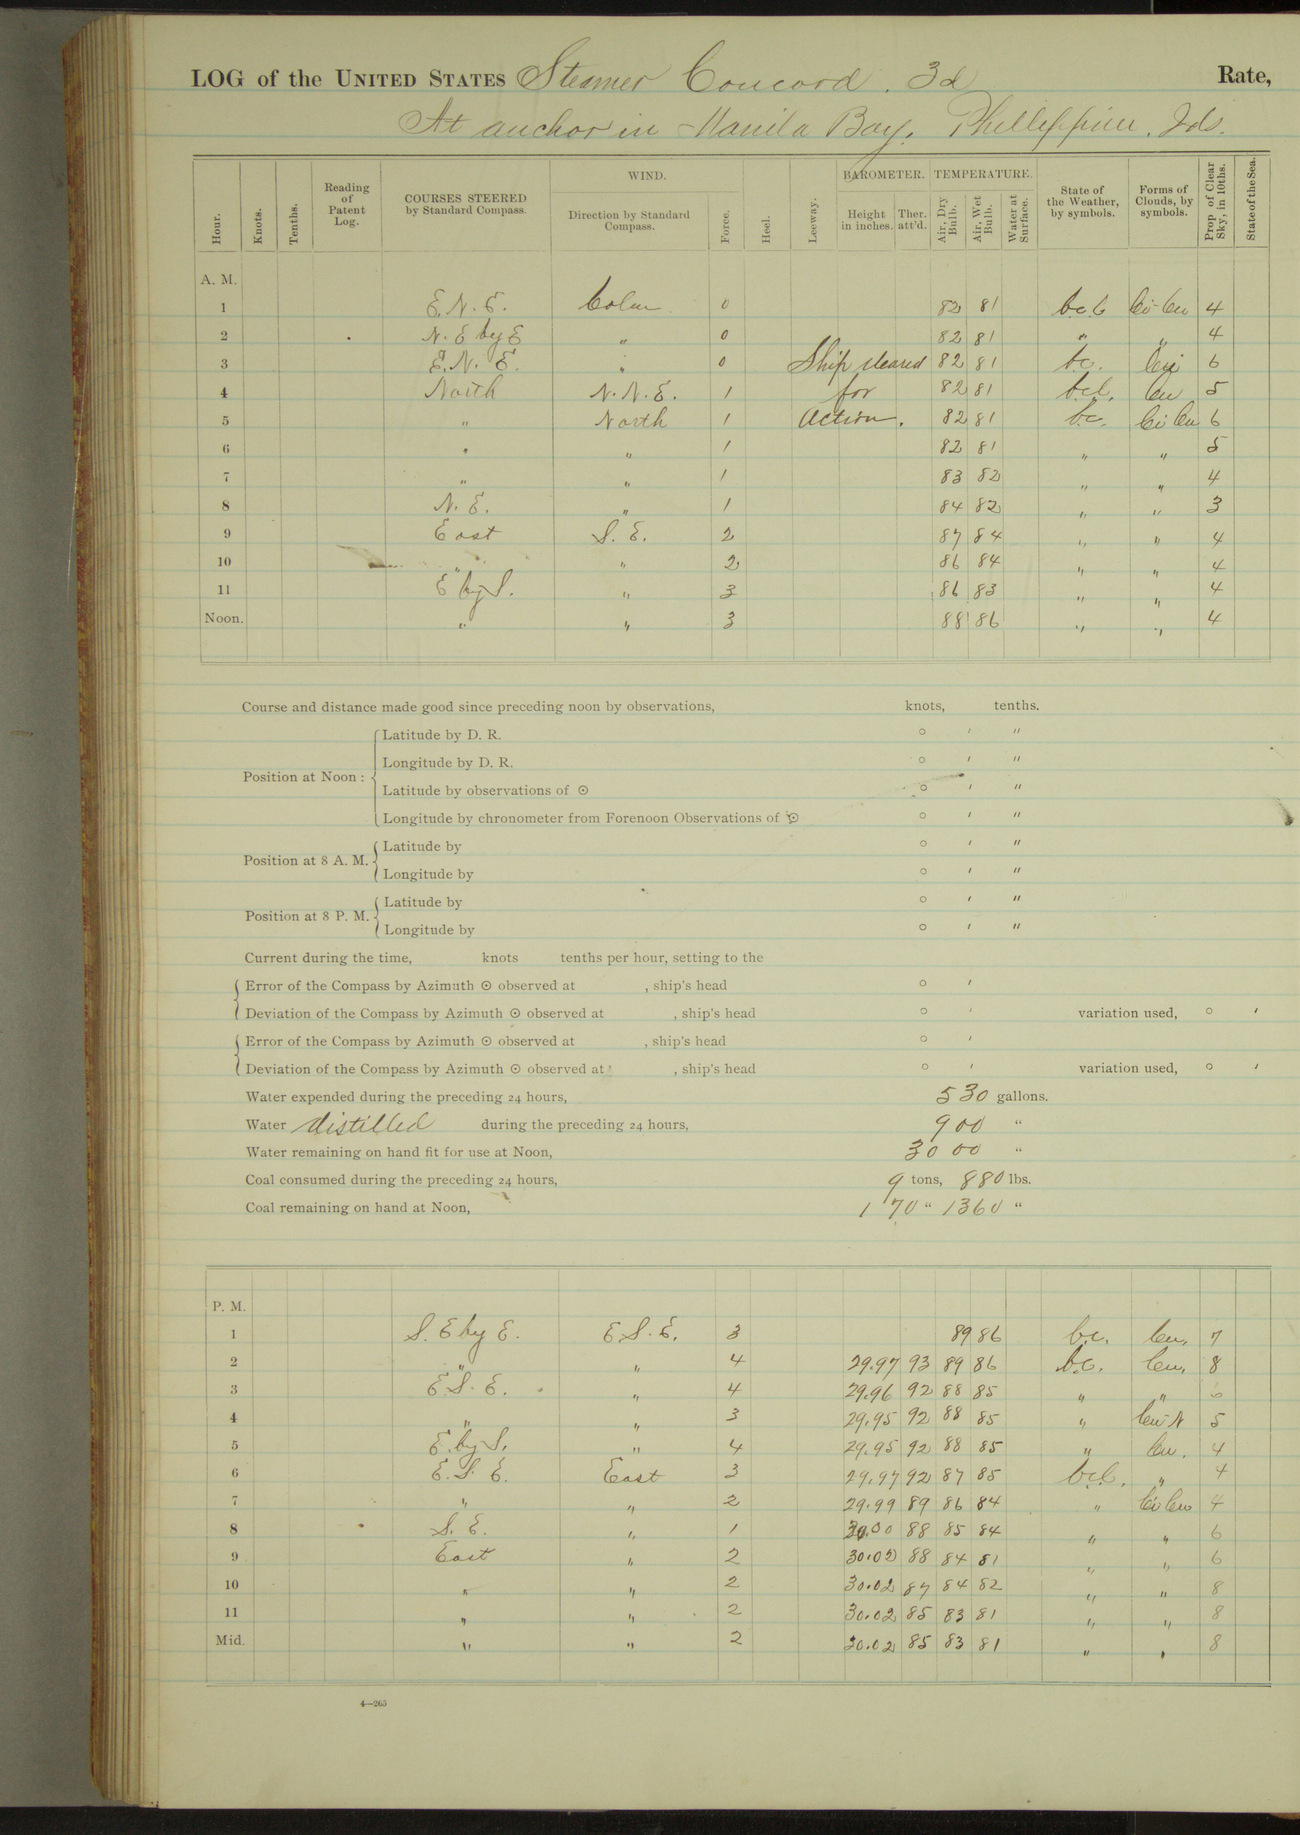 LOG of the UNITED STATES Steamer Concord. 3d Rate,
At anchor in Manila Bay, Phillippine. Ids.
Hour. Knots. Tenths. Reading of Patent Log. COURSES STEERED by Standard Compass. WIND. Direction by Standard Compass. Force. Heel. Leeway. BAROMETER. Height in inches. Ther. att'd. TEMPERATURE. Air, Dry Bulb. Air, Wet Bulb. Water at Surface. State of the Weather, by symbols. Forms of Clouds, by symbols. Prop of Clear Sky, in 10ths. State of the Sea.
A. M.
1 E. N. E. Calm 0 82 81 b.c.l Ci-Cu 4
2 N. E by E " 0 82 81 " " 4
3 E. N. E. " 0 Ship cleared 82 81 b.c. 6
4 North N. N. E. 1 for 82 81 b.c.l. Cu 5
5 " North 1 Action. 82 81 b.c. Ci Cu 6
6 " " 1 82 81 " " 5
7 " " 1 83 82 " " 4
8 N. E. " 1 84 82 " " 3
9 East S. E. 2 87 84 " " 4
10 " " 2 86 84 " " 4
11 E by S. " 3 86 83 " " 4
Noon. " " 3 88 86 " " 4
Course and distance made good since preceding noon by observations, knots, tenths.
Position at Noon :
Latitude by D. R. ° ' "
Longitude by D. R. ° ' "
Latitude by observations of ☉ ° ' "
Longitude by chronometer from Forenoon Observations of ☉ ° ' "
Position at 8 A. M.
Latitude by ° ' "
Longitude by ° ' "
Position at 8 P. M.
Latitude by ° ' "
Longitude by ° ' "
Current during the time, knots tenths per hour, setting to the
Error of the Compass by Azimuth ☉ observed at , ship's head ° '
Deviation of the Compass by Azimuth ☉ observed at , ship's head ° ' variation used, ° '
Error of the Compass by Azimuth ☉ observed at , ship's head ° '
Deviation of the Compass by Azimuth ☉ observed at , ship's head ° ' variation used, ° '
Water expended during the preceding 24 hours, 530 gallons.
Water distilled during the preceding 24 hours, 900 "
Water remaining on hand fit for use at Noon, 3000 "
Coal consumed during the preceding 24 hours, 9 tons, 880 lbs.
Coal remaining on hand at Noon, 170 " 1360 "
P. M.
1 S. E by E. E. S. E. 3 89 86 b.c. Cu. 7
2 " " 4 29.97 93 89 86 b.c. Cu. 8
3 E. S. E. " 4 29.96 92 88 85 " " 6
4 " " 3 29.95 92 88 85 " Cu N 5
5 E. by S. " 4 29.95 92 88 85 " Cu. 4
6 E. S. E. East 3 29.97 92 87 85 b.c.l. " 4
7 " " 2 29.99 89 86 84 " Ci Cu 4
8 S. E. " 1 30.00 88 85 84 " " 6
9 East " 2 30.02 88 84 81 " " 6
10 " " 2 30.02 87 84 82 " " 8
11 " " 2 30.02 85 83 81 " " 8
Mid. " " 2 30.02 85 83 81 " " 8
4—265